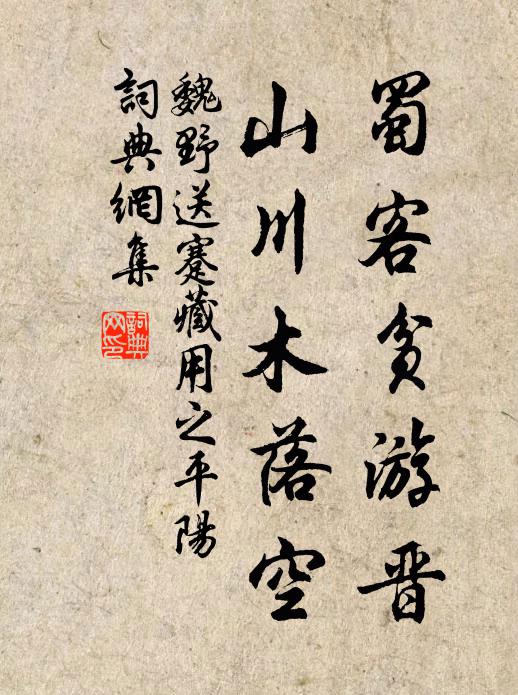 蜀客贫游晋
山川木落空
魏野送蹇藏用之平陽
詞典網集
詞典
网印